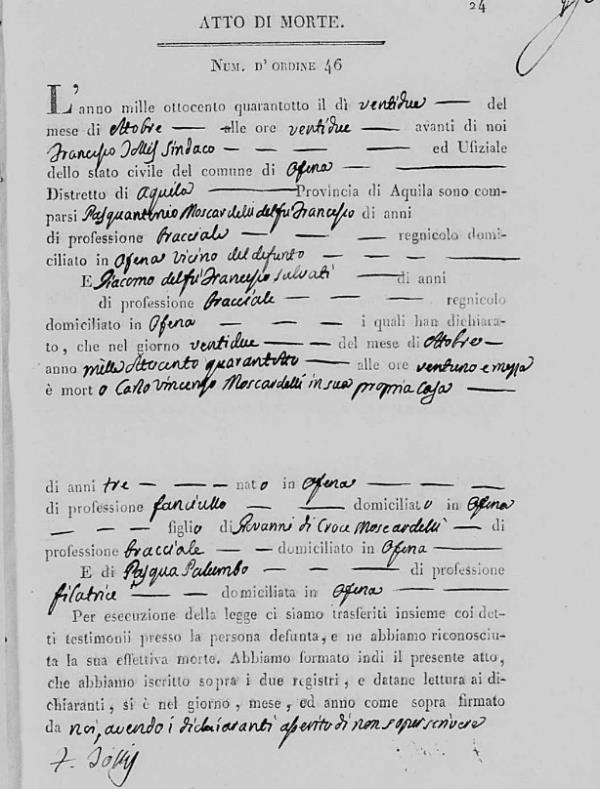 24
ATTO DI MORTE.
NUM. D' ORDINE 46
L'anno mille ottocento quarantotto il dì ventidue — del
mese di ottobre — alle ore ventidue — avanti di noi
Francesco Jollij Sindaco — — — — ed Ufiziale
dello stato civile del comune di Ofena — —
Distretto di Aquila — Provincia di Aquila sono com-
parsi Pasquantonio Moscardelli del fù Francesco di anni
di professione Bracciale — — — regnicolo domi-
ciliato in Ofena vicino del defunto — — — —
E Giacomo del fù Francesco Salvati — di anni
di professione Bracciale — — — regnicolo
domiciliato in Ofena — — — i quali han dichiara-
to, che nel giorno ventidue — — del mese di Ottobre —
anno mille ottocento quarantotto — alle ore ventuno e mezza
è mort o Carlo Vincenzo Moscardelli in sua propria Casa —
di anni tre — — — nato in Ofena — — —
di professione fanciullo — — domiciliato in Ofena
— — — figlio di Giovanni di Croce Moscardelli — di
professione Bracciale — — domiciliato in Ofena —
E di Pasqua Palumbo — — — di professione
filatrice — — domiciliata in Ofena — —
Per esecuzione della legge ci siamo trasferiti insieme coi det-
ti testimonii presso la persona defunta, e ne abbiamo riconosciu-
ta la sua effettiva morte. Abbiamo formato indi il presente atto,
che abbiamo iscritto sopra i due registri, e datane lettura ai di-
chiaranti, si è nel giorno, mese, ed anno come sopra firmato
da noi, avendo i dichiaranti asserito di non saper scrivere
F. Jollij